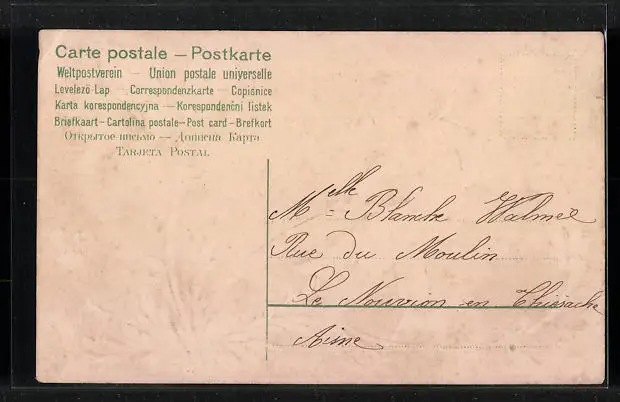 Carte postale — Postkarte
Weltpostverein — Union postale universelle
Levelező-Lap — Correspondenzkarte — Dopisnice
Karta korespondencyjna — Korespondenční lístek
Briefkaart – Cartolina postale – Post card – Brefkort
Открытое письмо — Дописна Карта
Tarjeta Postal
Melle Blanche Walmée
Rue du Moulin
Le Nouvion en Thiérache
Aisne